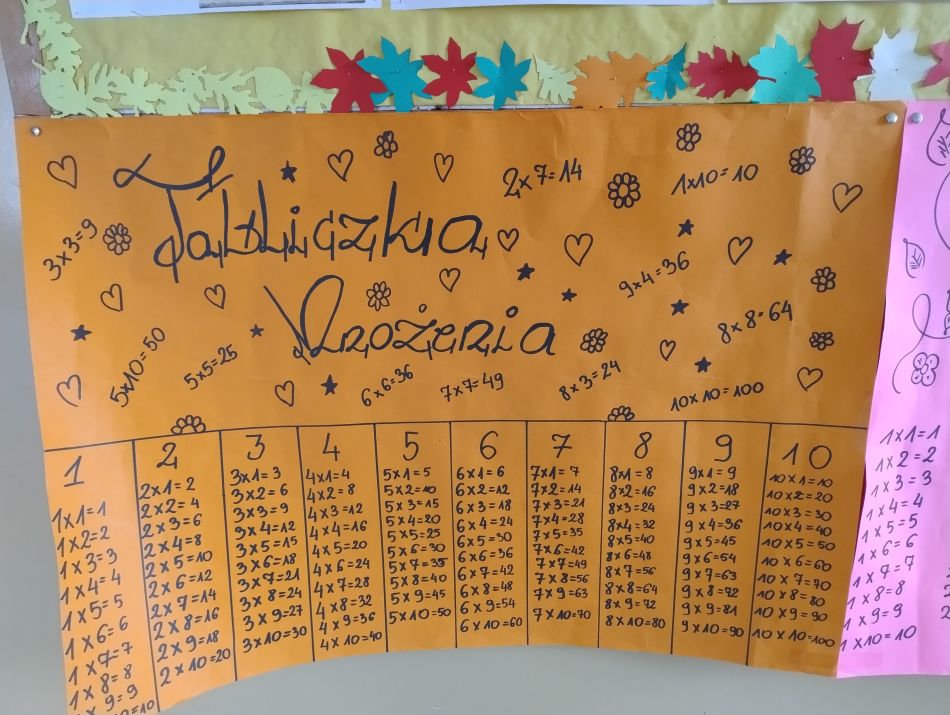 Tabliczka
Mnożenia
2x7=14
1x10=10
3x3=9
9x4=36
8x8=64
5x10=50
5x5=25
6x6=36
7x7=49
8x3=24
10x10=100
1
1x1=1
1x2=2
1x3=3
1x4=4
1x5=5
1x6=6
1x7=7
1x8=8
1x9=9
10=10
2
2x1=2
2x2=4
2x3=6
2x4=8
2x5=10
2x6=12
2x7=14
2x8=16
2x9=18
2x10=20
3
3x1=3
3x2=6
3x3=9
3x4=12
3x5=15
3x6=18
3x7=21
3x8=24
3x9=27
3x10=30
4
4x1=4
4x2=8
4x3=12
4x4=16
4x5=20
4x6=24
4x7=28
4x8=32
4x9=36
4x10=40
5
5x1=5
5x2=10
5x3=15
5x4=20
5x5=25
5x6=30
5x7=35
5x8=40
5x9=45
5x10=50
6
6x1=6
6x2=12
6x3=18
6x4=24
6x5=30
6x6=36
6x7=42
6x8=48
6x9=54
6x10=60
7
7x1=7
7x2=14
7x3=21
7x4=28
7x5=35
7x6=42
7x7=49
7x8=56
7x9=63
7x10=70
8
8x1=8
8x2=16
8x3=24
8x4=32
8x5=40
8x6=48
8x7=56
8x8=64
8x9=72
8x10=80
9
9x1=9
9x2=18
9x3=27
9x4=36
9x5=45
9x6=54
9x7=63
9x8=72
9x9=81
9x10=90
10
10x1=10
10x2=20
10x3=30
10x4=40
10x5=50
10x6=60
10x7=70
10x8=80
10x9=90
10x10=100
1x1=1
1x2=2
1x3=3
1x4=4
1x5=5
1x6=6
1x7=7
1x8=8
1x9=9
1x10=10